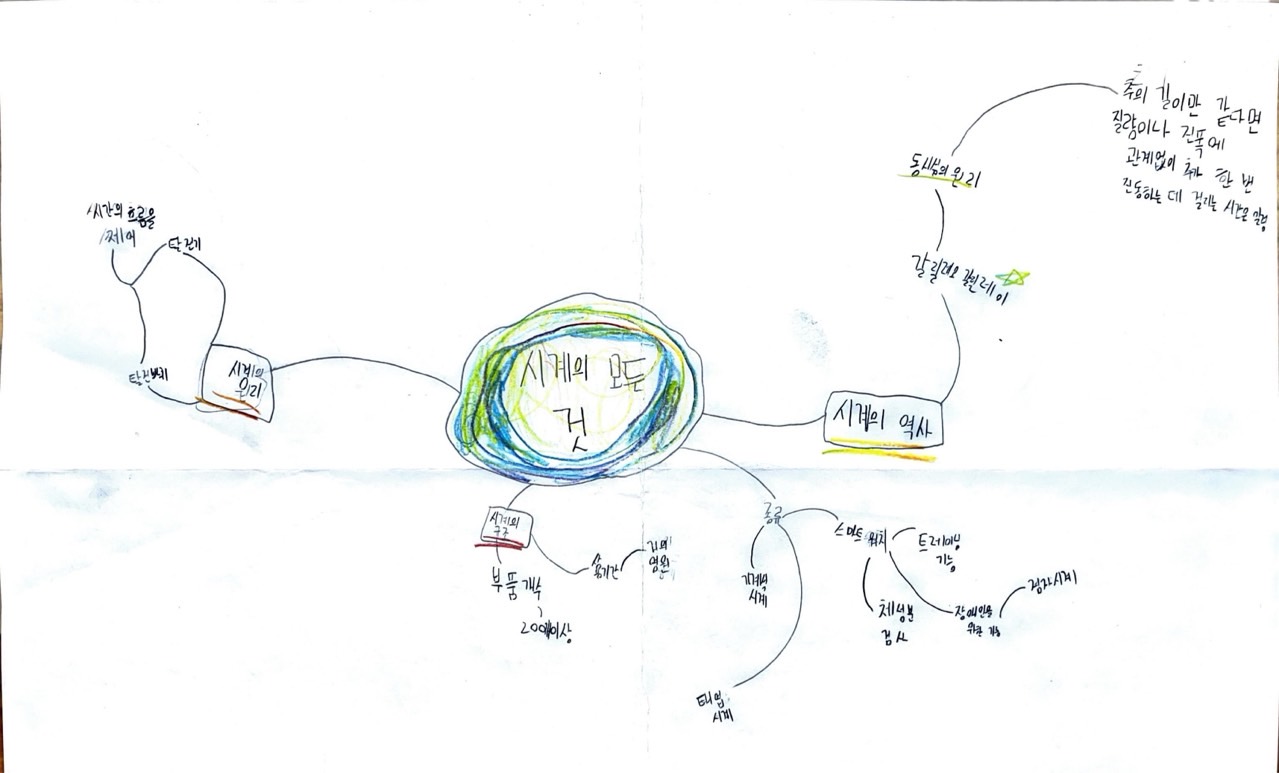 시계의 모든
것
시계의 역사
갈릴레오 갈릴레이
동시성의 원리
추의 길이만 같다면
질량이나 진폭에
관계없이 추가 한 번
진동하는 데 걸리는 시간은 일정
시계의
원리
탈진기
시간의 흐름을
제어
시계의
구조
부품 개수
200개이상
거의
영원
종류
기계식
시계
태엽
시계
스마트 워치
트레이닝
기능
체성분
검사
장애인을
위한 기능
점자시계